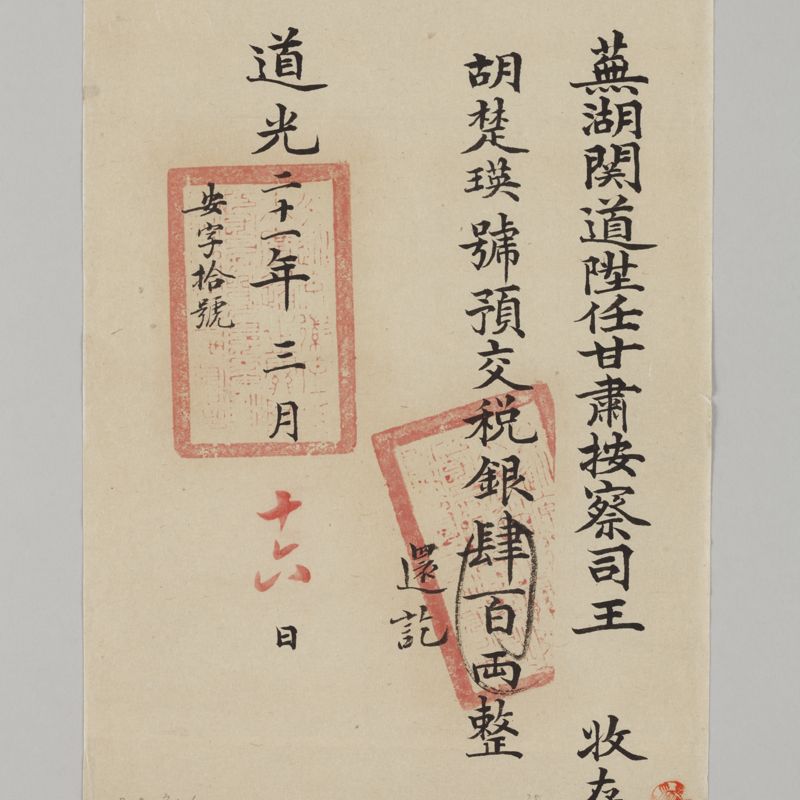 蕪湖関道陞任甘肅按察司王 收存
胡楚瑛號預交税銀肆百両整
還訖
道光二十一年三月十六日
安字拾號